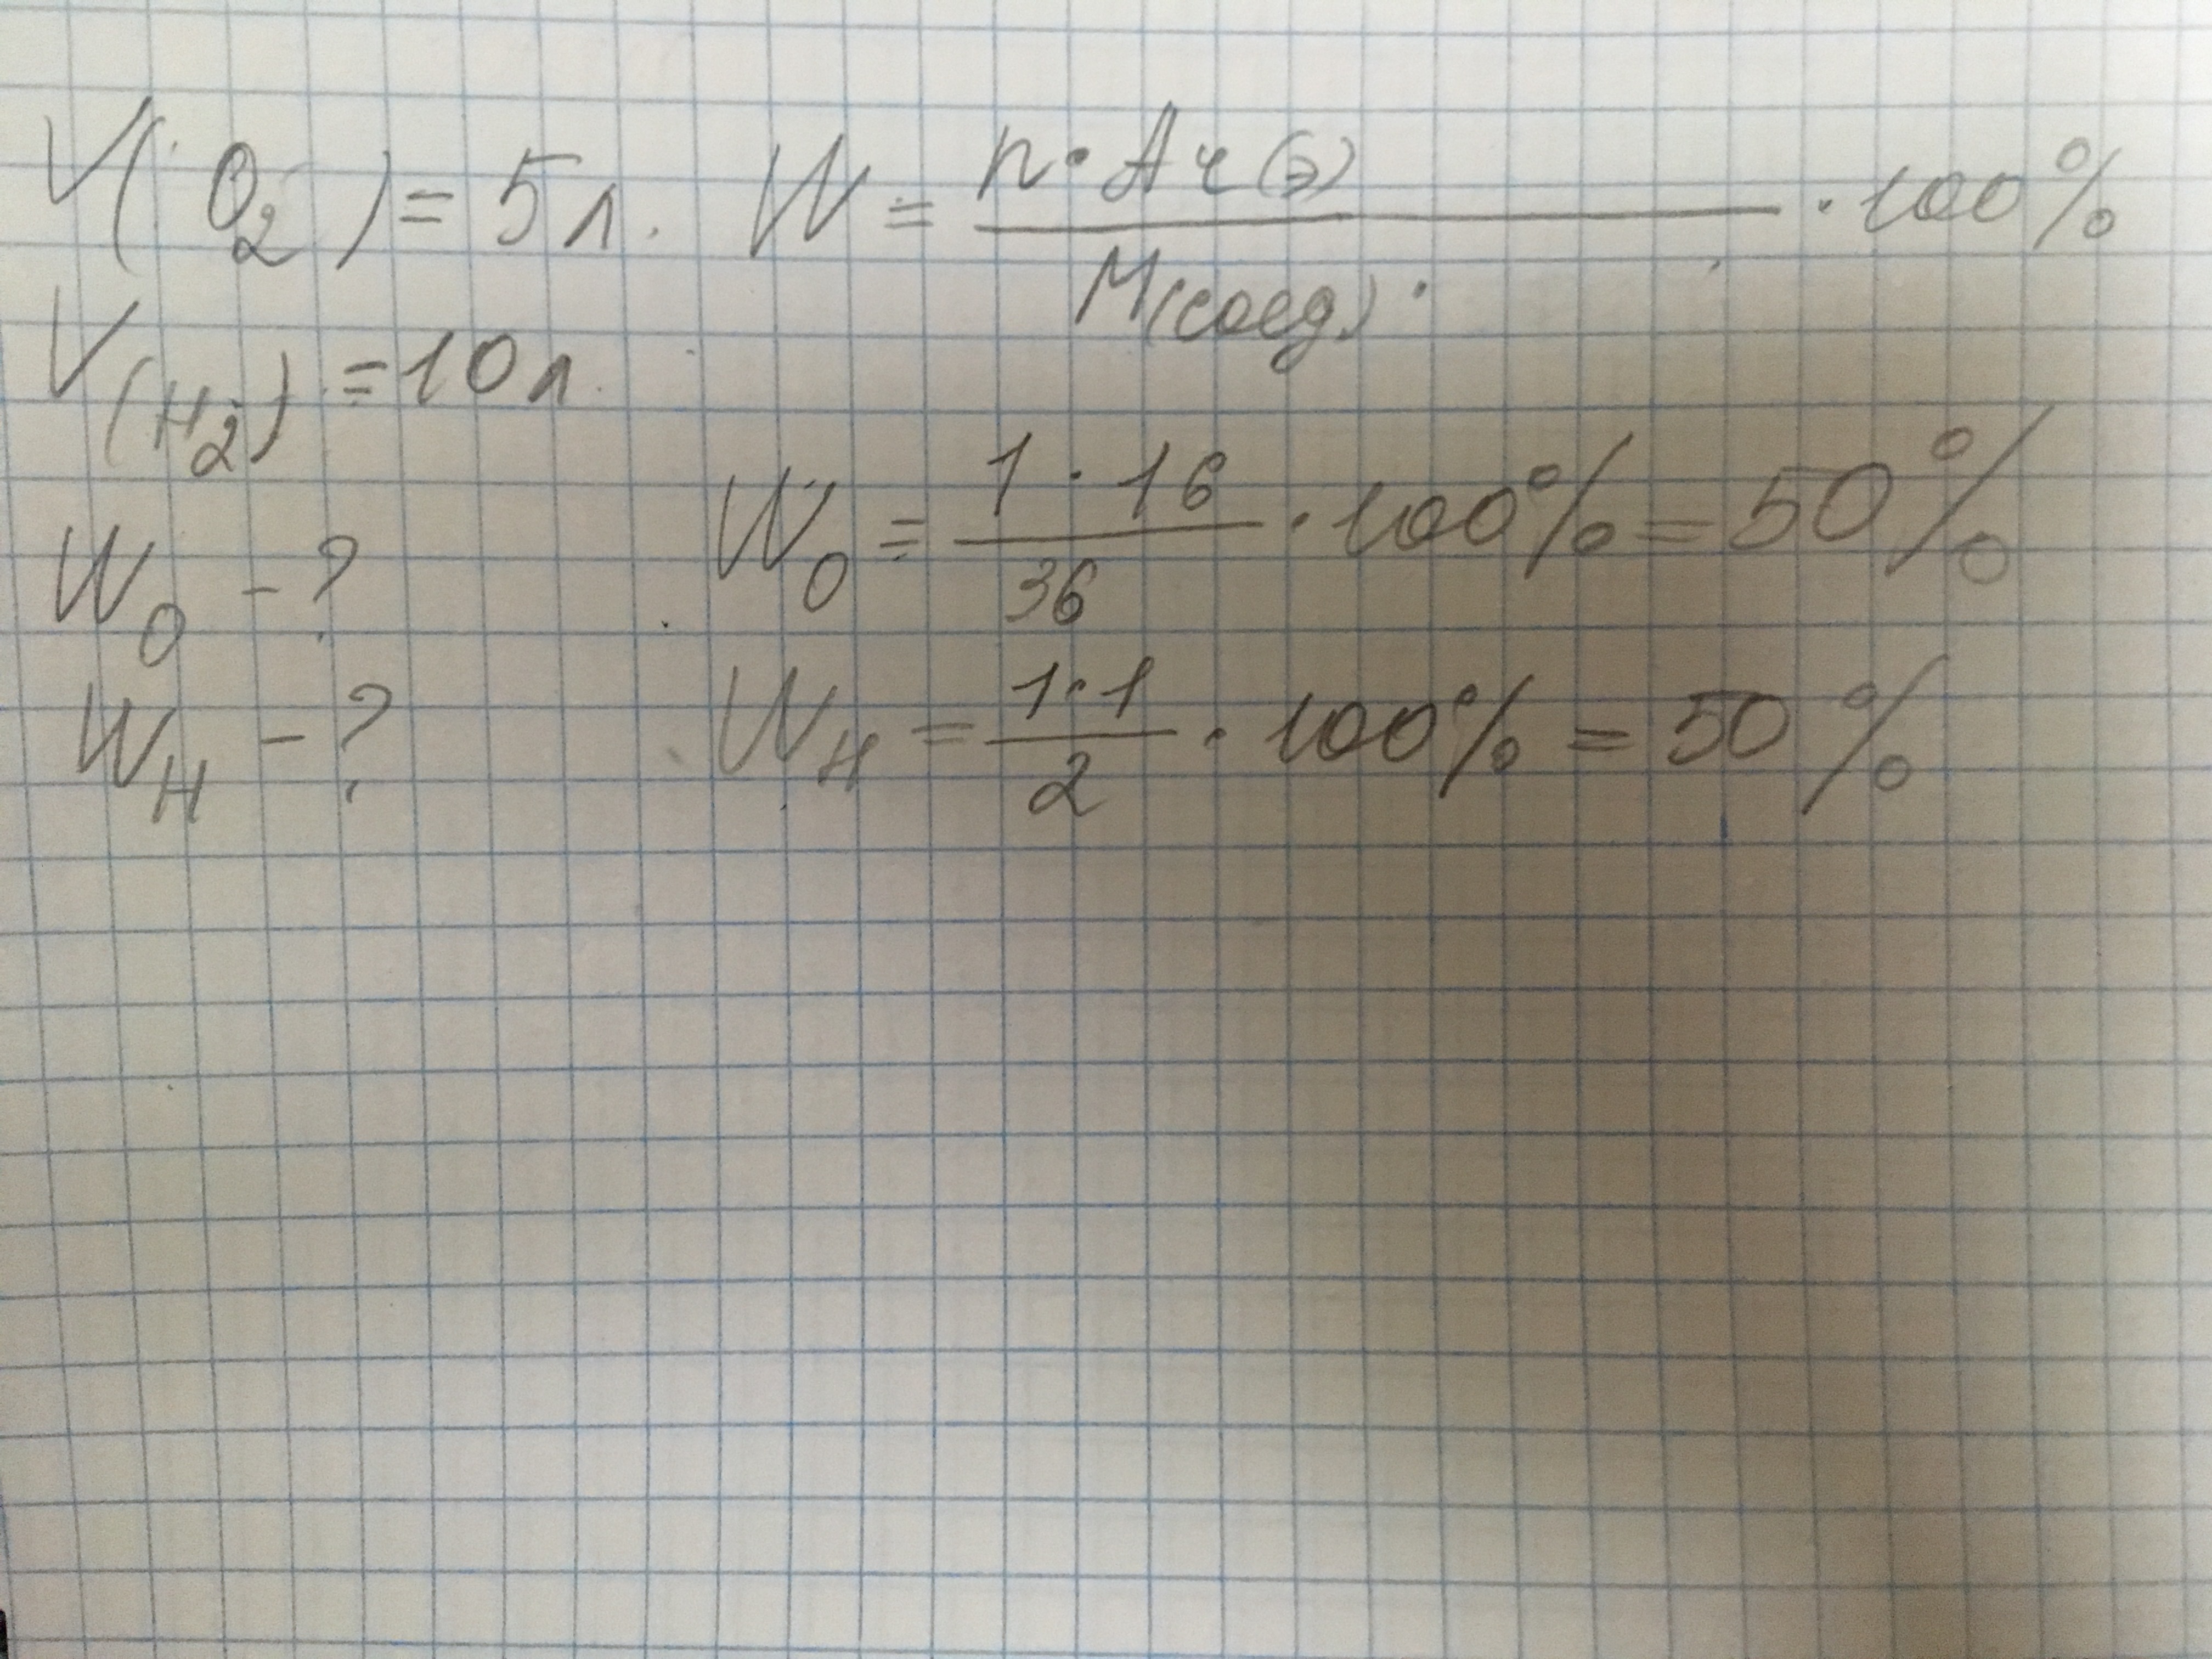 V(O₂) = 5 л. W = n · Ar(э) / M(соед.) · 100%
V(H₂) = 10 л.
W₀ - ? W₀ = 1 · 16 / 36 · 100% = 50%
W_H - ? W_H = 1 · 1 / 2 · 100% = 50%